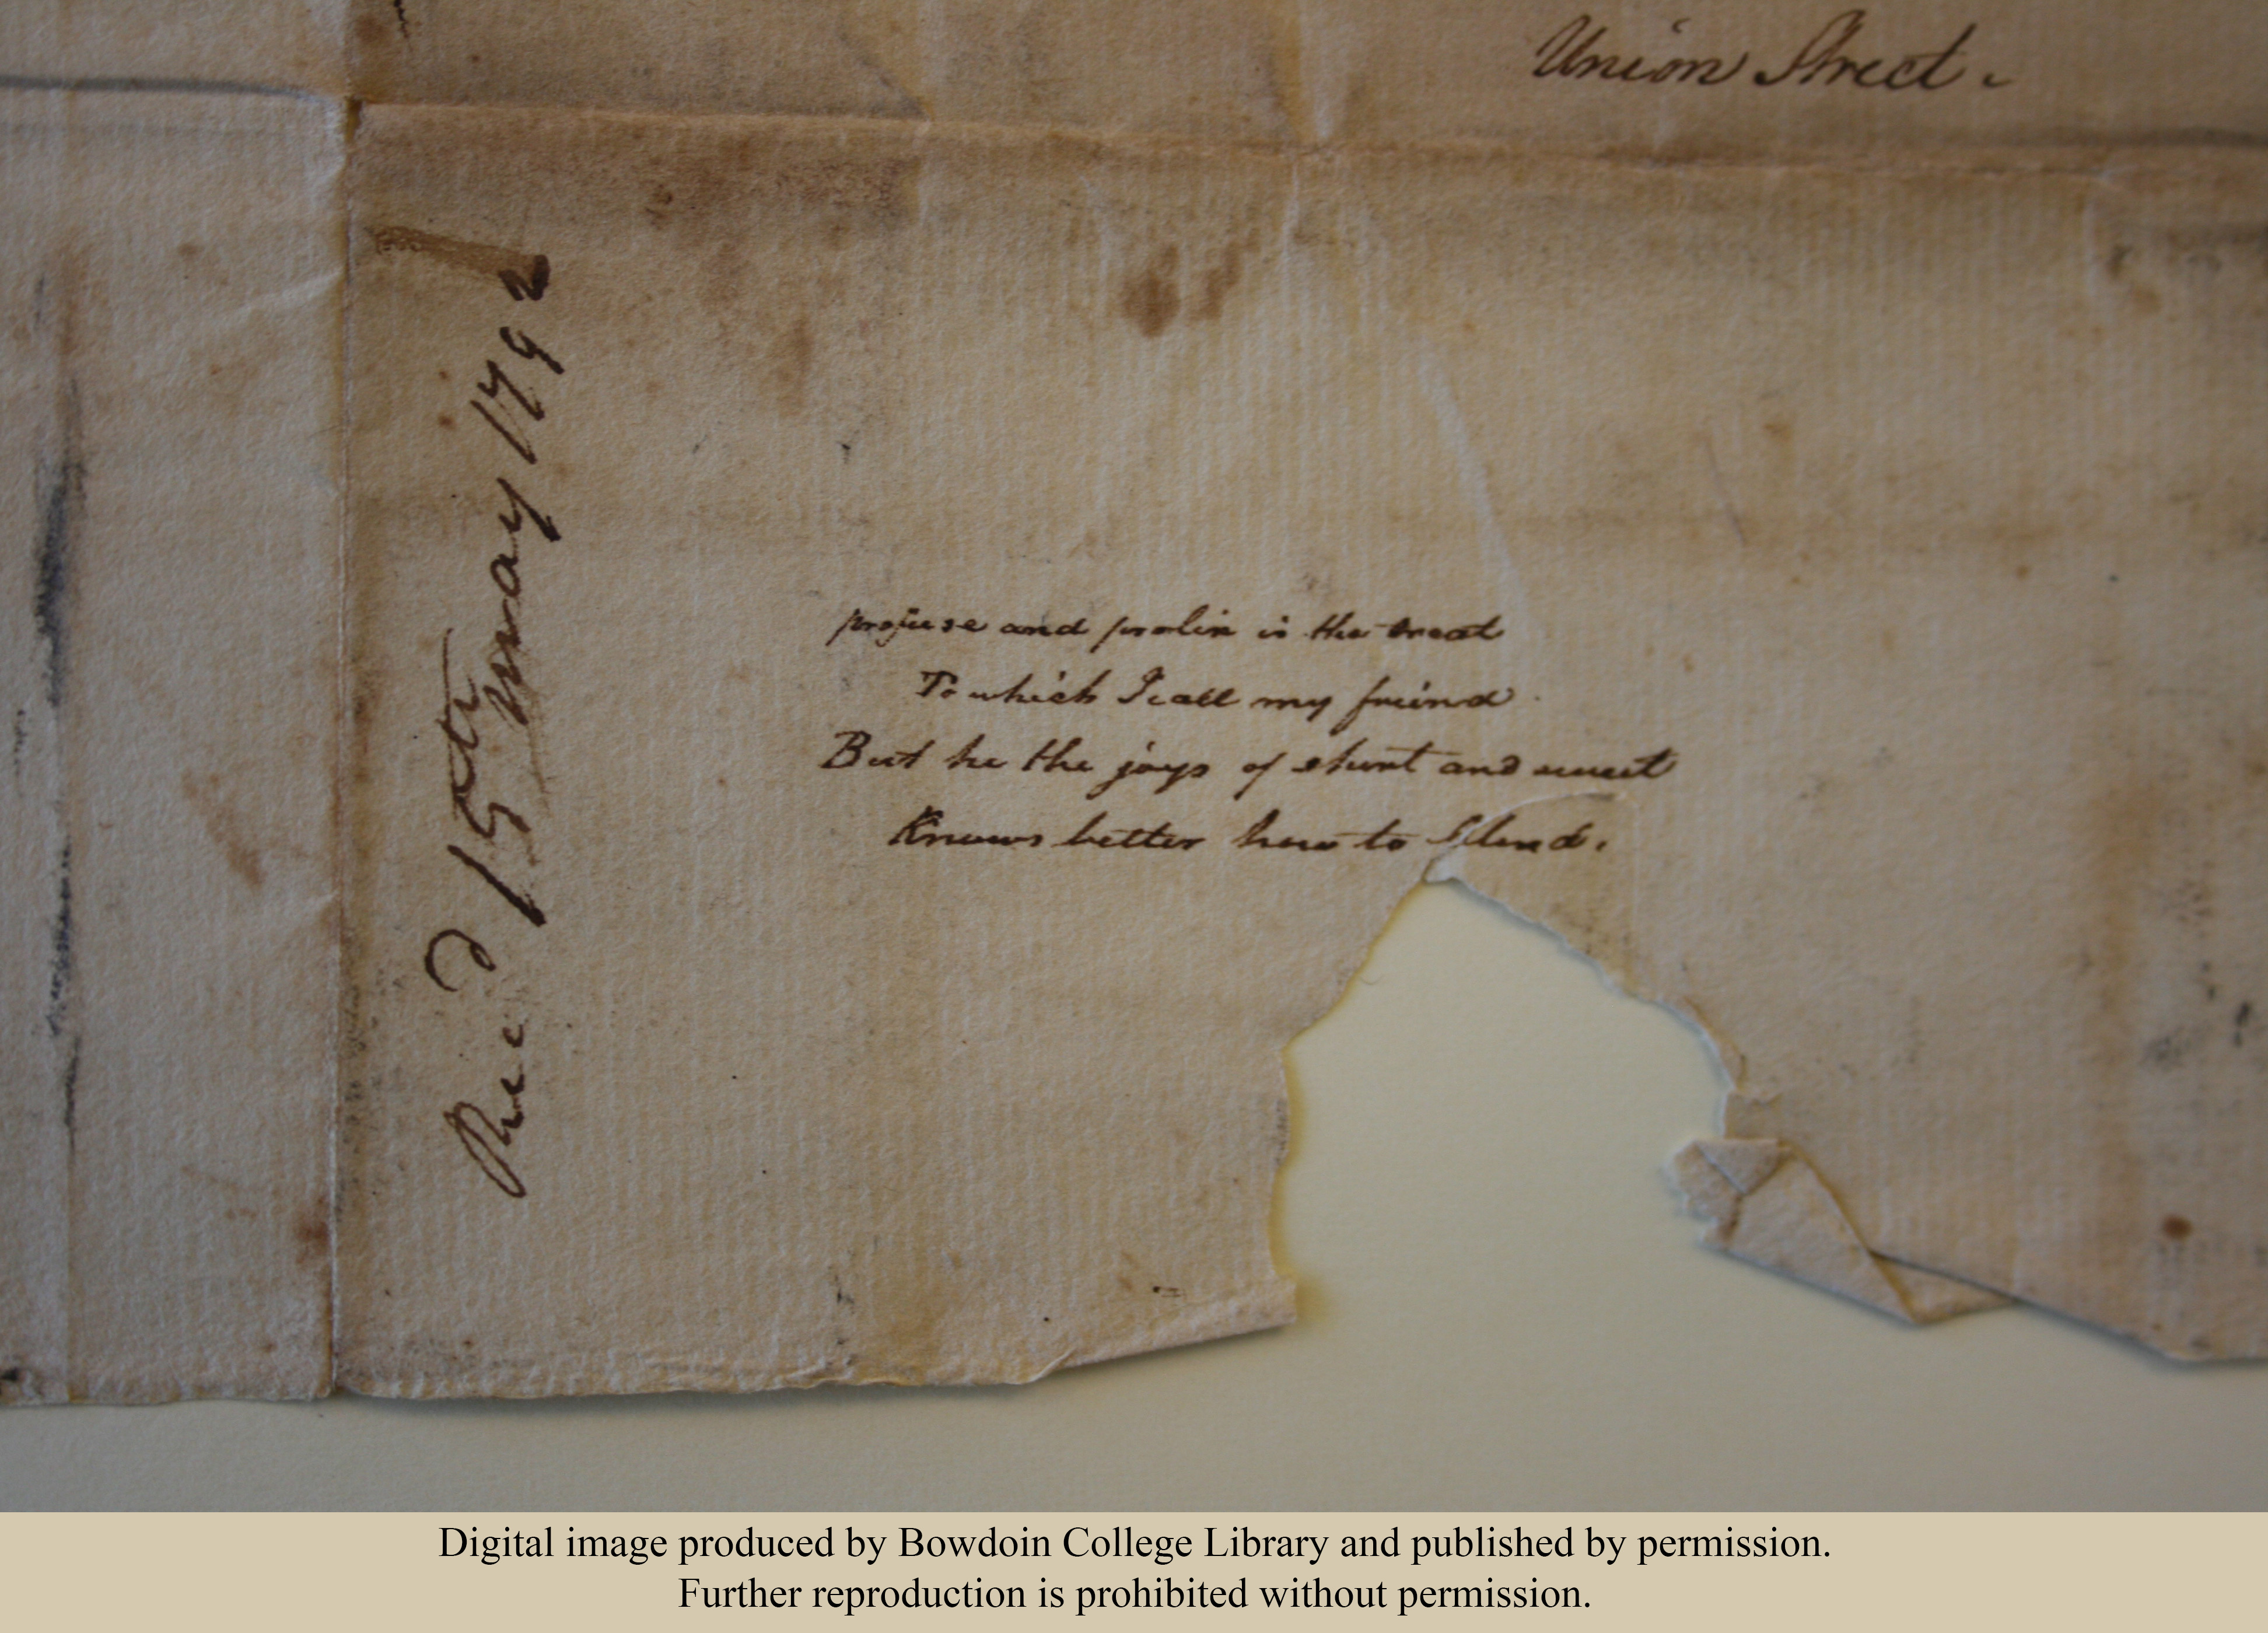 Union Street.
Recd 15th May 1792
profuse and prolix is the treat
To which I call my friend
But he the joys of short and sweet
Knows better how to blend.
Digital image produced by Bowdoin College Library and published by permission.
Further reproduction is prohibited without permission.